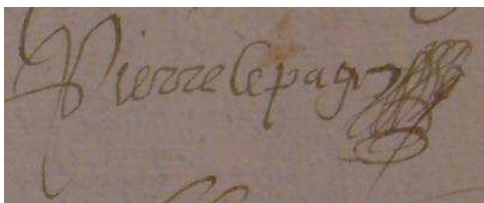 Pierre lepage